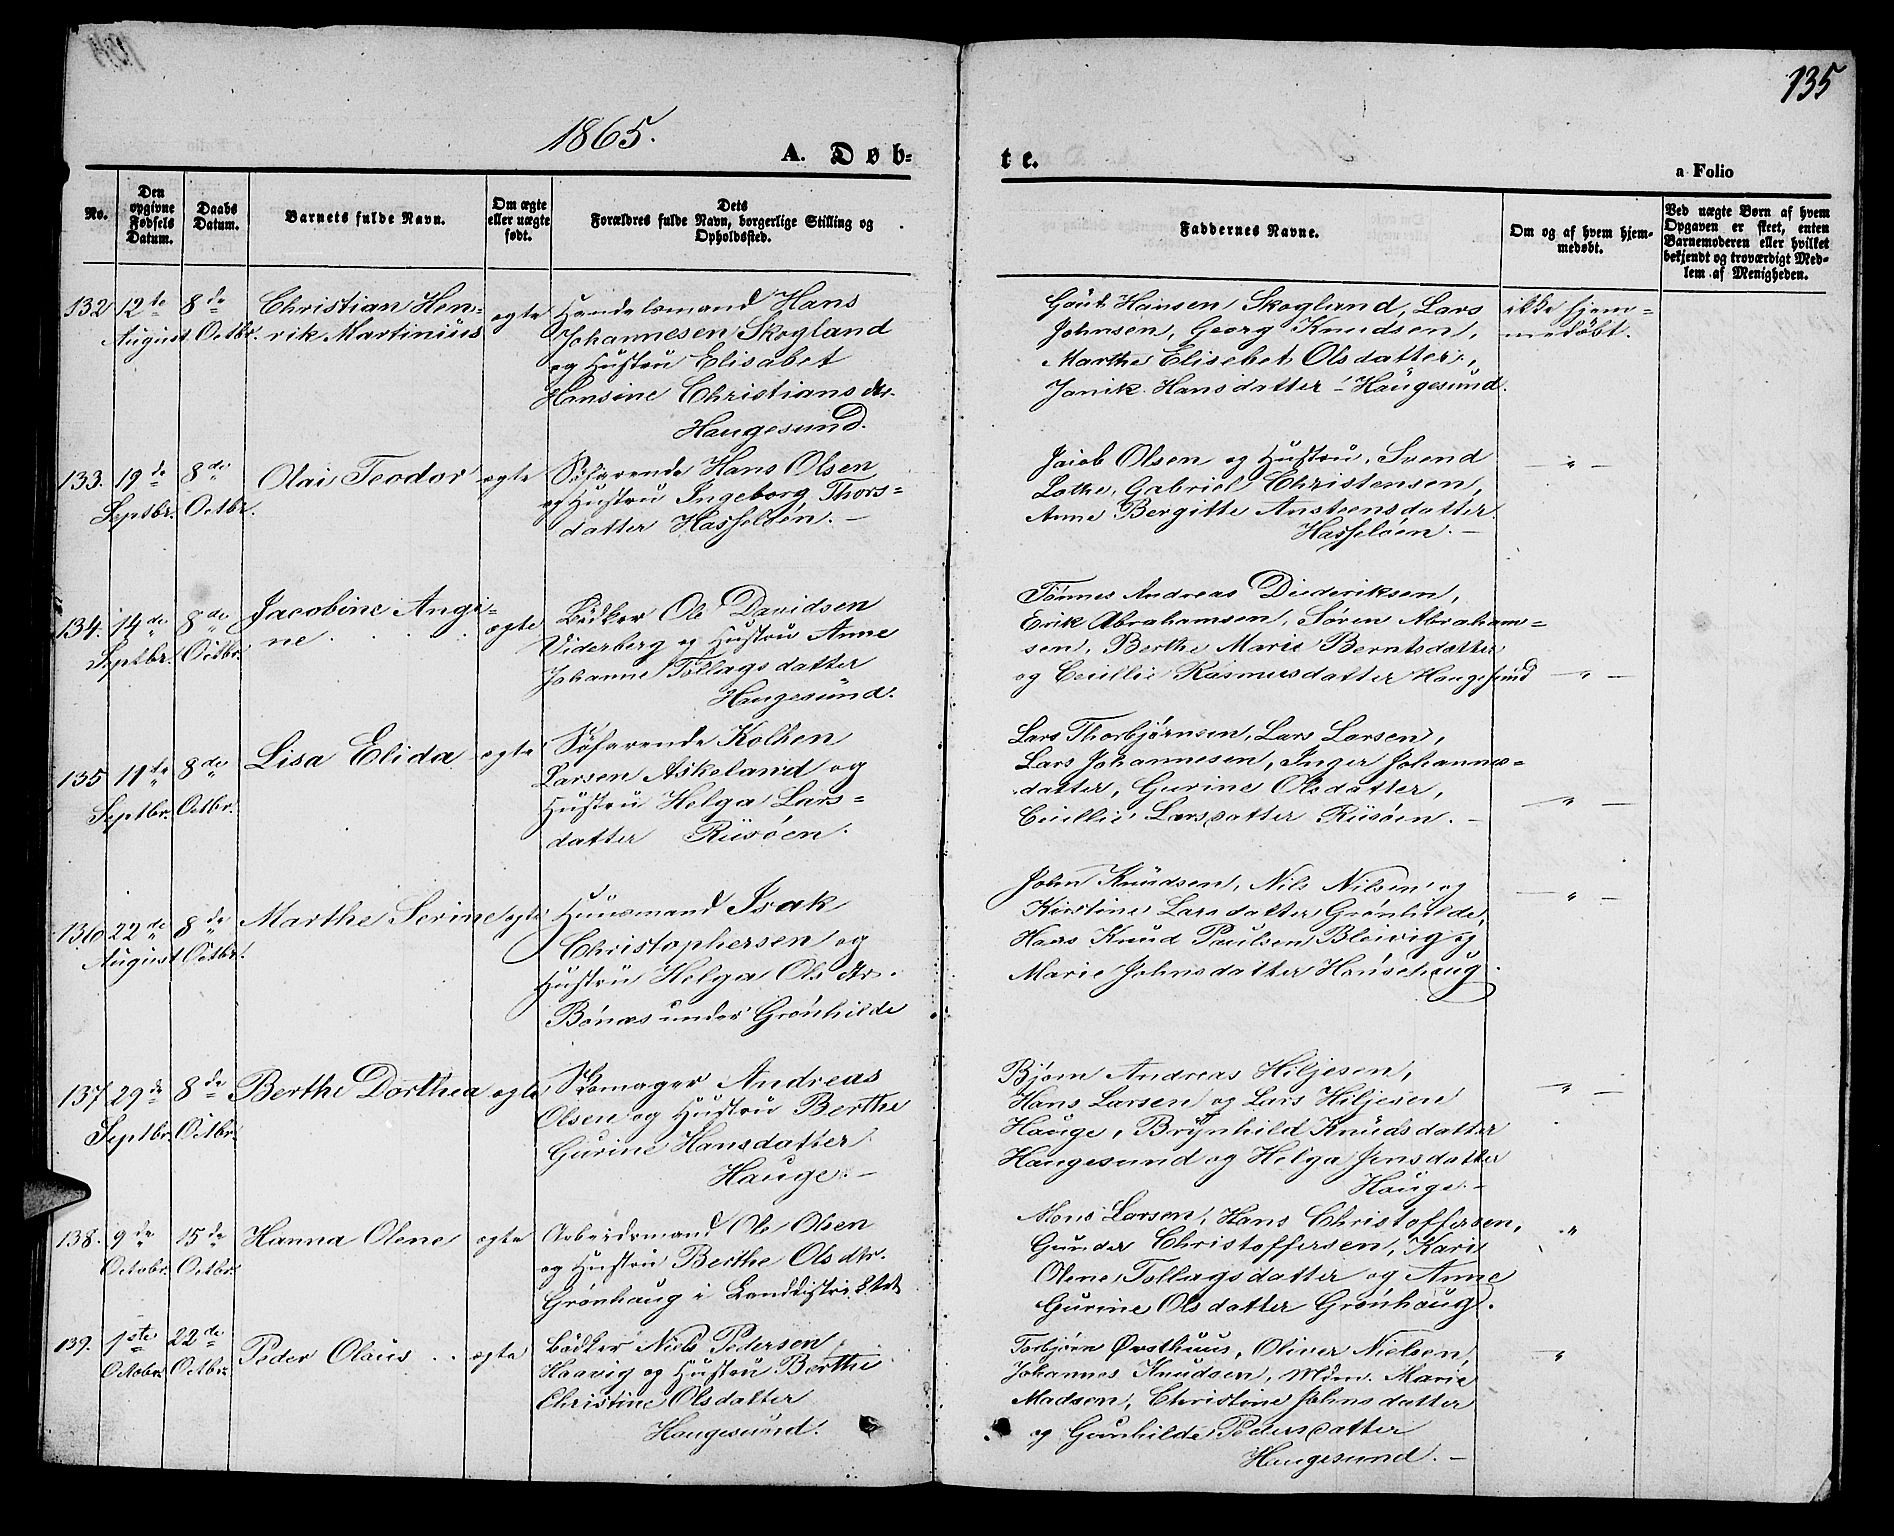 135
1865.
A. Døb=
te.
a Folio
No.
Den opgivne Fødsels Datum.
Daabs Datum.
Barnets fulde Navn.
Om ægte eller uægte født.
Dets Forældres fulde Navn, borgerlige Stilling og Opholdssted.
Faddernes Navne.
Om og af hvem hjem-
medøbt.
Ved uægte Børn af hvem
Opgaven er skeet, enten
Barnemoderen eller hvilket
bekjendt og troværdigt Med-
lem af Menigheden.
132 12te August 8de Octbr.
Christian Hen=
rik Martinius
ægte
Handelsmand Hans
Johannesen Skogland
og Hustru Elisabet
Hansine Christiansdtr.
Haugesund.
Gaut Hansen Skogland, Lars
Johnsen, Georg Knudsen,
Marthe Elisebet Olsdatter,
Janik Hansdatter - Haugesund.
ikke hjem=
medøbt.
133. 19de Septbr. 8de Octbr.
Olai Teodor
ægte
Søfarende Hans Olsen
og Hustru Ingeborg Thors=
datter Hasseløen. -
Jacob Olsen og Hustru, Svend
Lothe, Gabriel Christensen,
Anne Bergitte Anstensdatter
Hasseløen. -
- " -
134. 14de Septbr. 8de Octbr.
Jacobine Angi=
ne
ægte
Bödker Ole Davidsen
Viderberg og Hustru Anne
Johanne Tollagsdatter
Haugesund.
Tönnes Andreas Diederiksen,
Erik Abrahamsen, Søren Abraham=
sen, Berthe Marie Berntsdatter
og Cecillie Rasmusdatter Haugesund
- " -
135 11te Septbr. 8de Octbr.
Lisa Elida
ægte
Søfarende Kolben
Larsen Askeland og
Hustru Helga Lars=
datter Risøen.
Lars Thorbjørnsen, Lars Larsen,
Lars Johannesen, Inger Johannes=
datter, Gurine Olsdatter,
Cecillie Larsdatter Risøen. -
- " -
136 22de August 8de Octbr.
Marthe Serine
ægte
Huusmand Isak
Christophersen og
Hustru Helga Olsdtr.
Bönæs under Grønhilde
John Knudsen, Nils Nilsen og
Kirstine Larsdatter Grønhilde,
Hans Knud Paulsen Bleivig og
Marie Johnsdatter Hansehaug.
- " -
137 29de Septbr. 8de Octbr.
Berthe Dorthea
ægte
Skomager Andreas
Olsen og Hustru Berthe
Gurine Hansdatter
Hauge. -
Bjørn Andreas Hiljesen,
Hans Larsen og Lars Hiljesen
Hauge, Brynhild Knudsdatter
Haugesund og Helga Jensdatter
Hauge. -
- " -
138. 9de Octobr. 15de Octbr.
Hanna Olene
ægte
Arbeidsmand Ole Olsen
og Hustru Berthe Olsdtr.
Grønhaug i Landdistriktet
Mons Larsen, Hans Christoffersen,
Gunder Christoffersen, Kari
Olene Tollagsdatter og Anne
Gurine Olsdatter Grønhaug.
"
139. 1ste October 22de Octbr.
Peder Olaus
ægte
Bödker Niels Pedersen
Haavig og Hustru Berthe
Christine Olsdatter
Haugesund.
Torbjørn Øvsthuus, Oliver Nielsen,
Johannes Knudsen, Mdm. Marie
Madsen, Christine Johnsdatter
og Gunhilde Pedersdatter
Haugesund. -
- "